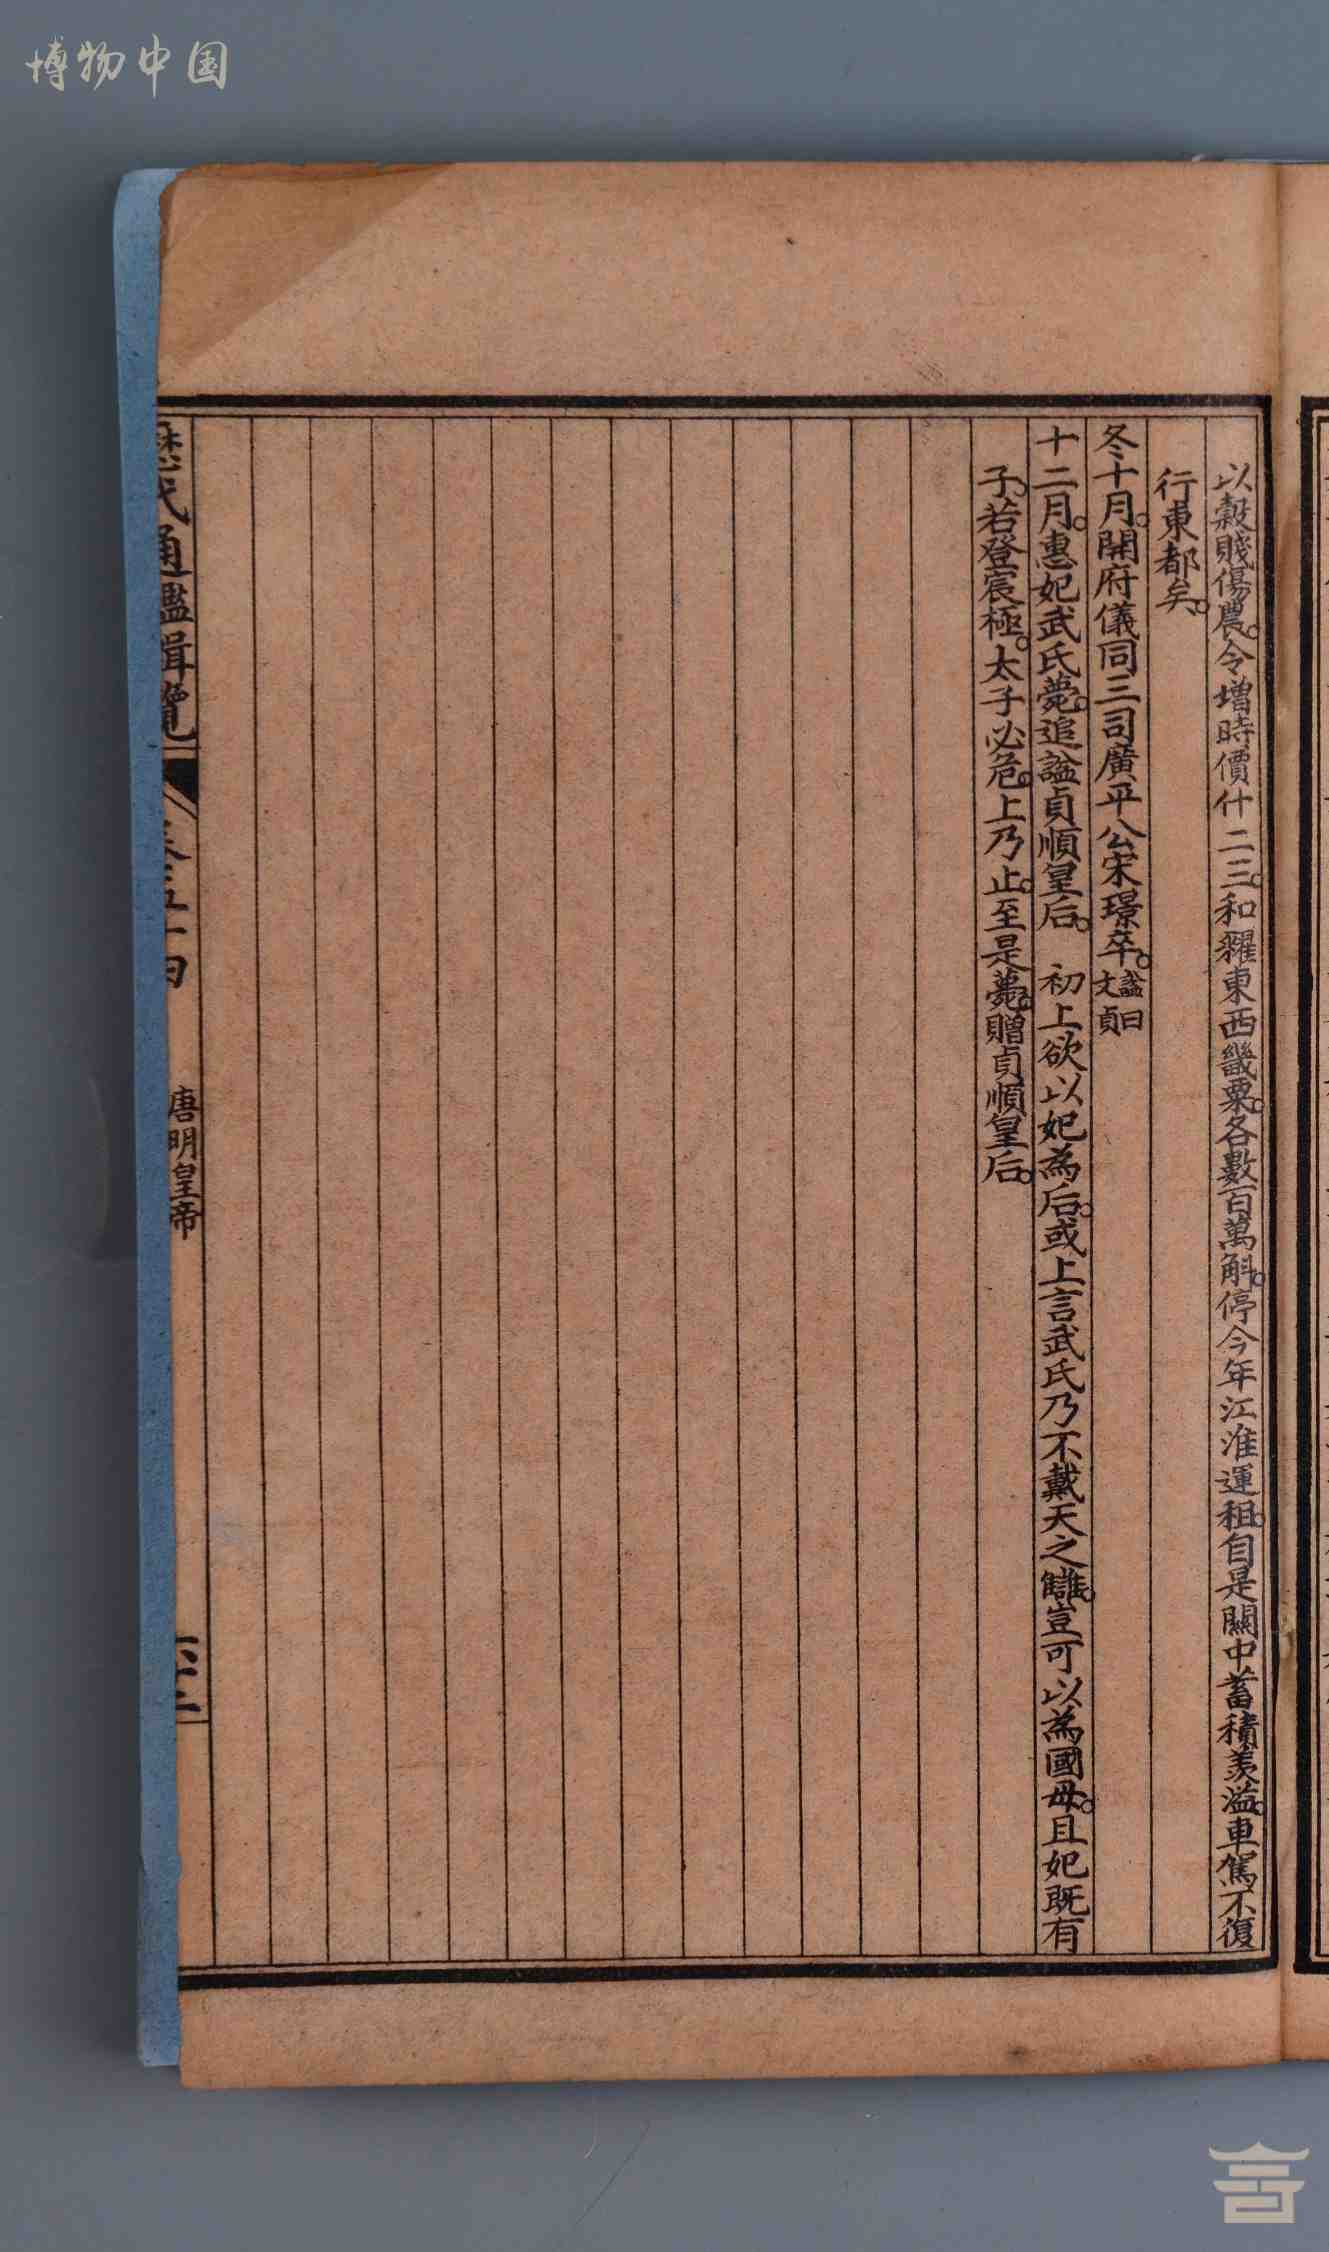 博物中国
以穀賤傷農。令增時價什二三。和糴東西畿粟。各數百萬斛。停今年江淮運租。自是關中蓄積羨溢。車駕不復
行東都矣。
冬十月。開府儀同三司廣平公宋璟卒。謚曰文貞
十二月。惠妃武氏薨。追謚貞順皇后。　初上欲以妃為后。或上言武氏乃不戴天之讎。豈可以為國母。且妃既有
子。若登宸極。太子必危。上乃止。至是薨。贈貞順皇后。
歷代通鑑輯覽
唐明皇帝